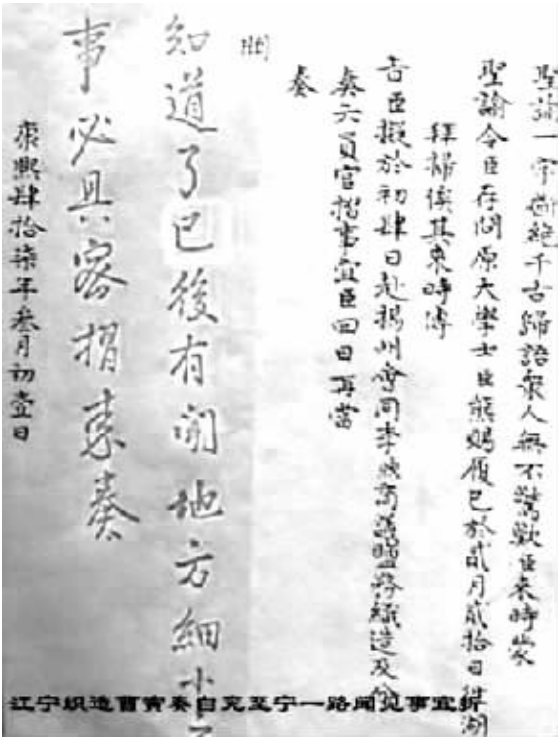 聖諭一字絕千古歸語衆人無不驚歎臣來時蒙
聖諭令臣存問原大學士臣熊賜履已於貳月貳拾日往湖
拜掃俟其來時傳
旨臣擬於初肆日赴揚州會同李煦商議鹽務織造及
奏六員官摺事宜臣回日再當
奏
知道了已後有聞地方細小之
事必具密摺來奏
康熙肆拾柒年叁月初壹日
江宁织造曹寅奏自兖至宁一路闻见事宜折